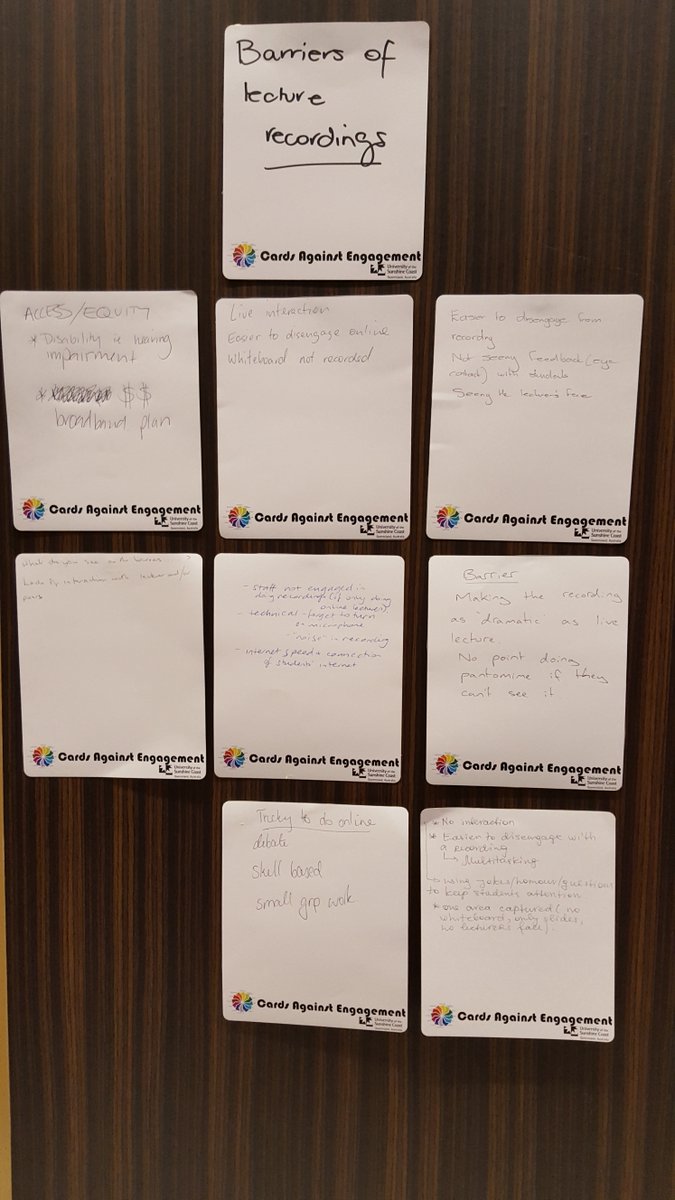 Barriers of
lecture
recordings
Cards Against Engagement
University of the
Sunshine Coast
Queensland, Australia
ACCESS/EQUITY
* Disability ie hearing
impairment
* $$
broadband plan
Cards Against Engagement
University of the
Sunshine Coast
Queensland, Australia
Live interaction
Easier to disengage online
Whiteboard not recorded
Cards Against Engagement
University of the
Sunshine Coast
Queensland, Australia
Easier to disengage from
recording
Not seeing Feedback (eye
contact) with students
Seeing the lecturer's face
Cards Against Engagement
University of the
Sunshine Coast
Queensland, Australia
what do you see as the barriers ?
Lack of interaction with lecturer and/or
peers
Cards Against Engagement
University of the
Sunshine Coast
Queensland, Australia
- staff not engaged in
doing recordings (if only doing
online lecture).
- technical - forget to turn
on microphone
- "noise" in recording
- internet speed & connection
of students' internet
Cards Against Engagement
University of the
Sunshine Coast
Queensland, Australia
Barrier
Making the recording
as "dramatic" as live
lecture.
No point doing
pantomime if they
can't see it.
Cards Against Engagement
University of the
Sunshine Coast
Queensland, Australia
Tricky to do online
debate
skill based
small grp work
Cards Against Engagement
University of the
Sunshine Coast
Queensland, Australia
* No interaction
* Easier to disengage with
a recording
↳ Multitasking
↳ using jokes/humour/questions
to keep students attention
* one area captured (no
whiteboard, only slides,
no lecturers face).
Cards Against Engagement
University of the
Sunshine Coast
Queensland, Australia